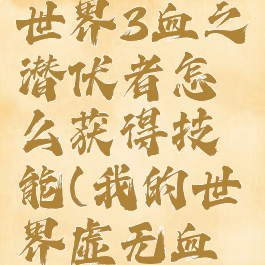 世界3血之
潜伏者怎
么获得技
能(我的世
界虚无血